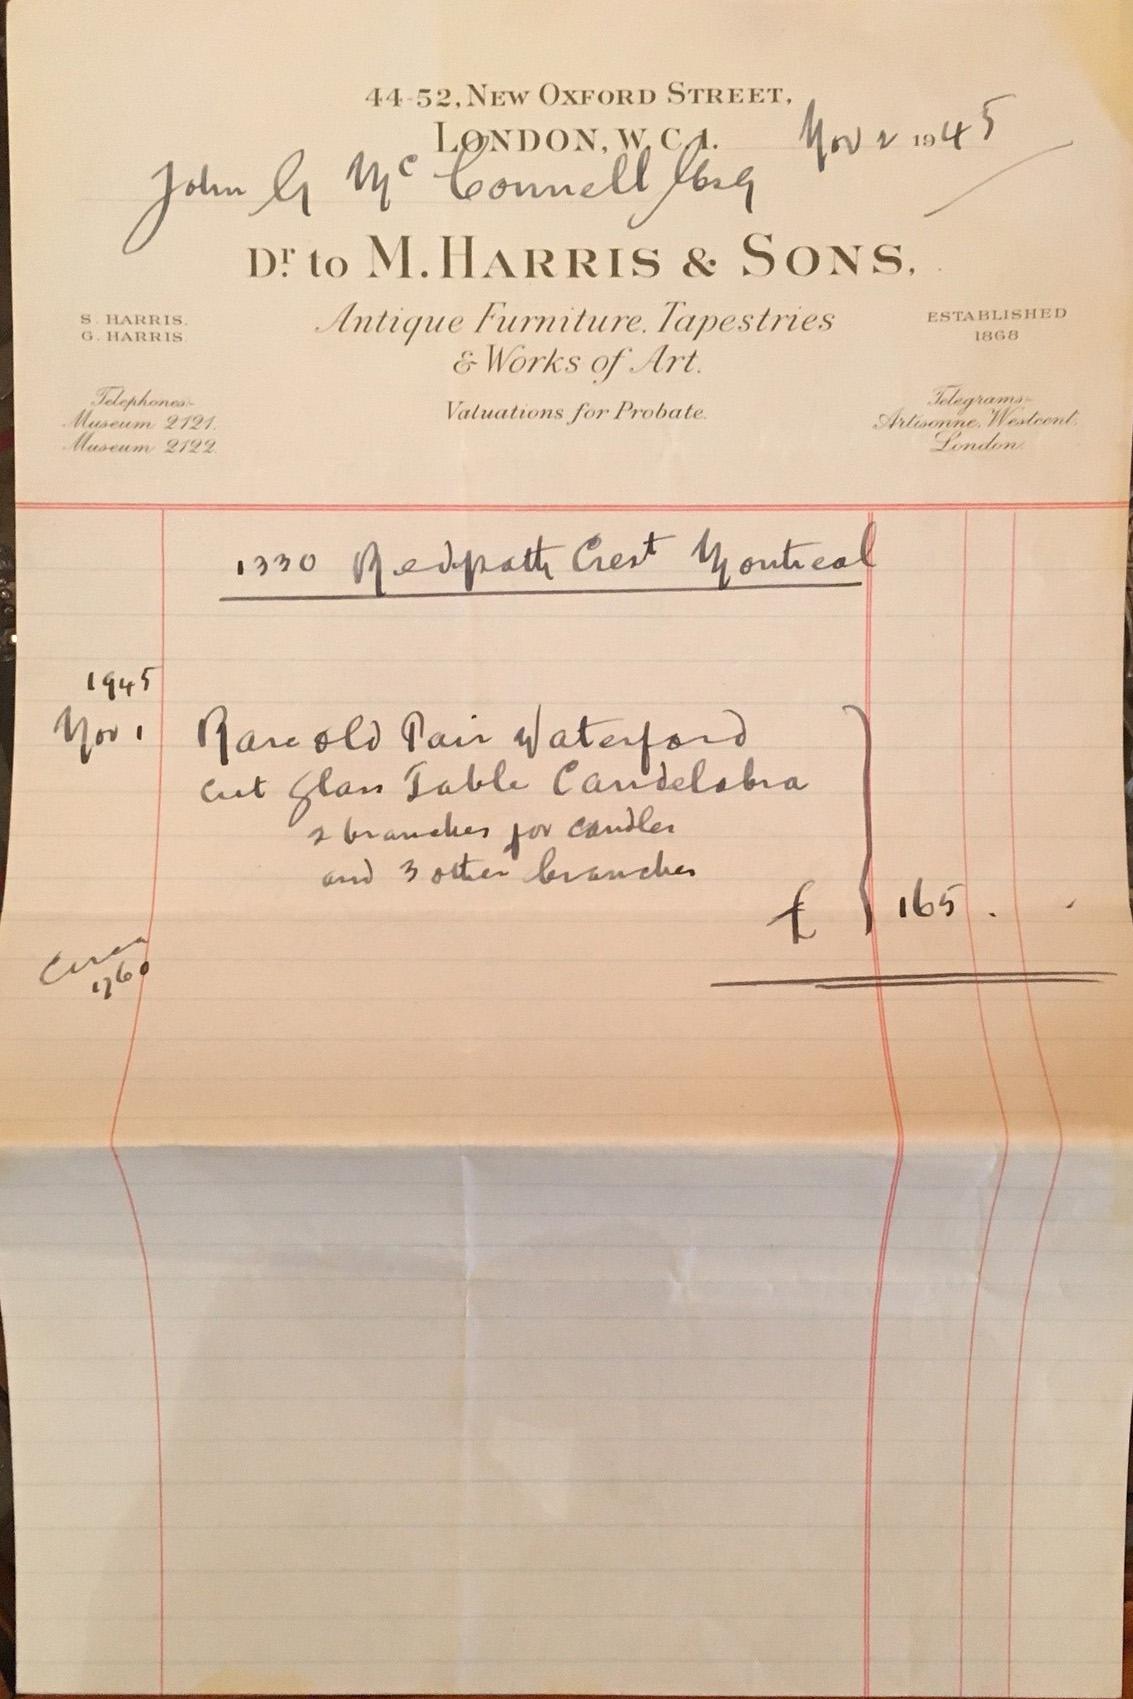 44-52, NEW OXFORD STREET,
LONDON, W.C.1. Nov 2 1945
John G McConnell Esq
Dr. to M. HARRIS & SONS.
S. HARRIS.
G. HARRIS.
Antique Furniture, Tapestries
& Works of Art.
ESTABLISHED
1868
Telephones:-
Museum 2121.
Museum 2122.
Valuations for Probate.
Telegrams:-
Artisonne, Westcent,
London.
1330 Redpath Crest Montreal
1945
Nov 1 Rare old Pair Waterford
cut glass Table Candelabra
2 branches for candles
and 3 other branches
£ 165 . .
Circa
1760